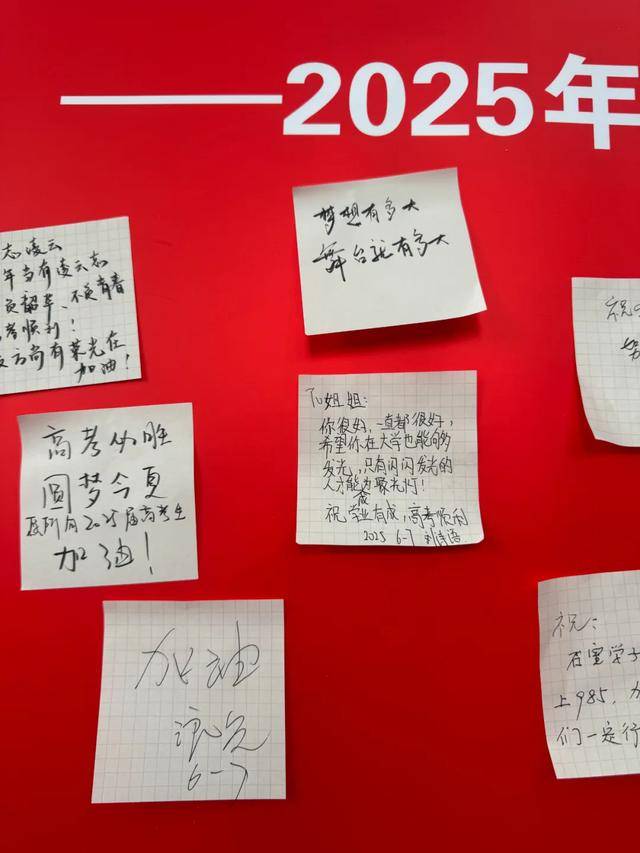 ——2025年
梦想有多大
舞台就有多大
志凌云
年当有凌云志
负韶华、不负青春
考顺利！
方尚有荣光在
加油！
祝
To姐姐：
你很好，一直都很好，
希望你在大学也能闪
发光，只有闪闪发光的
人才能成为聚光灯！
祝学业有成，高考顺利
2025 6-7
高考必胜
圆梦今夏
2025届高考生
加油！
加油
6-7
祝：
石室学子
上985，
们一定行